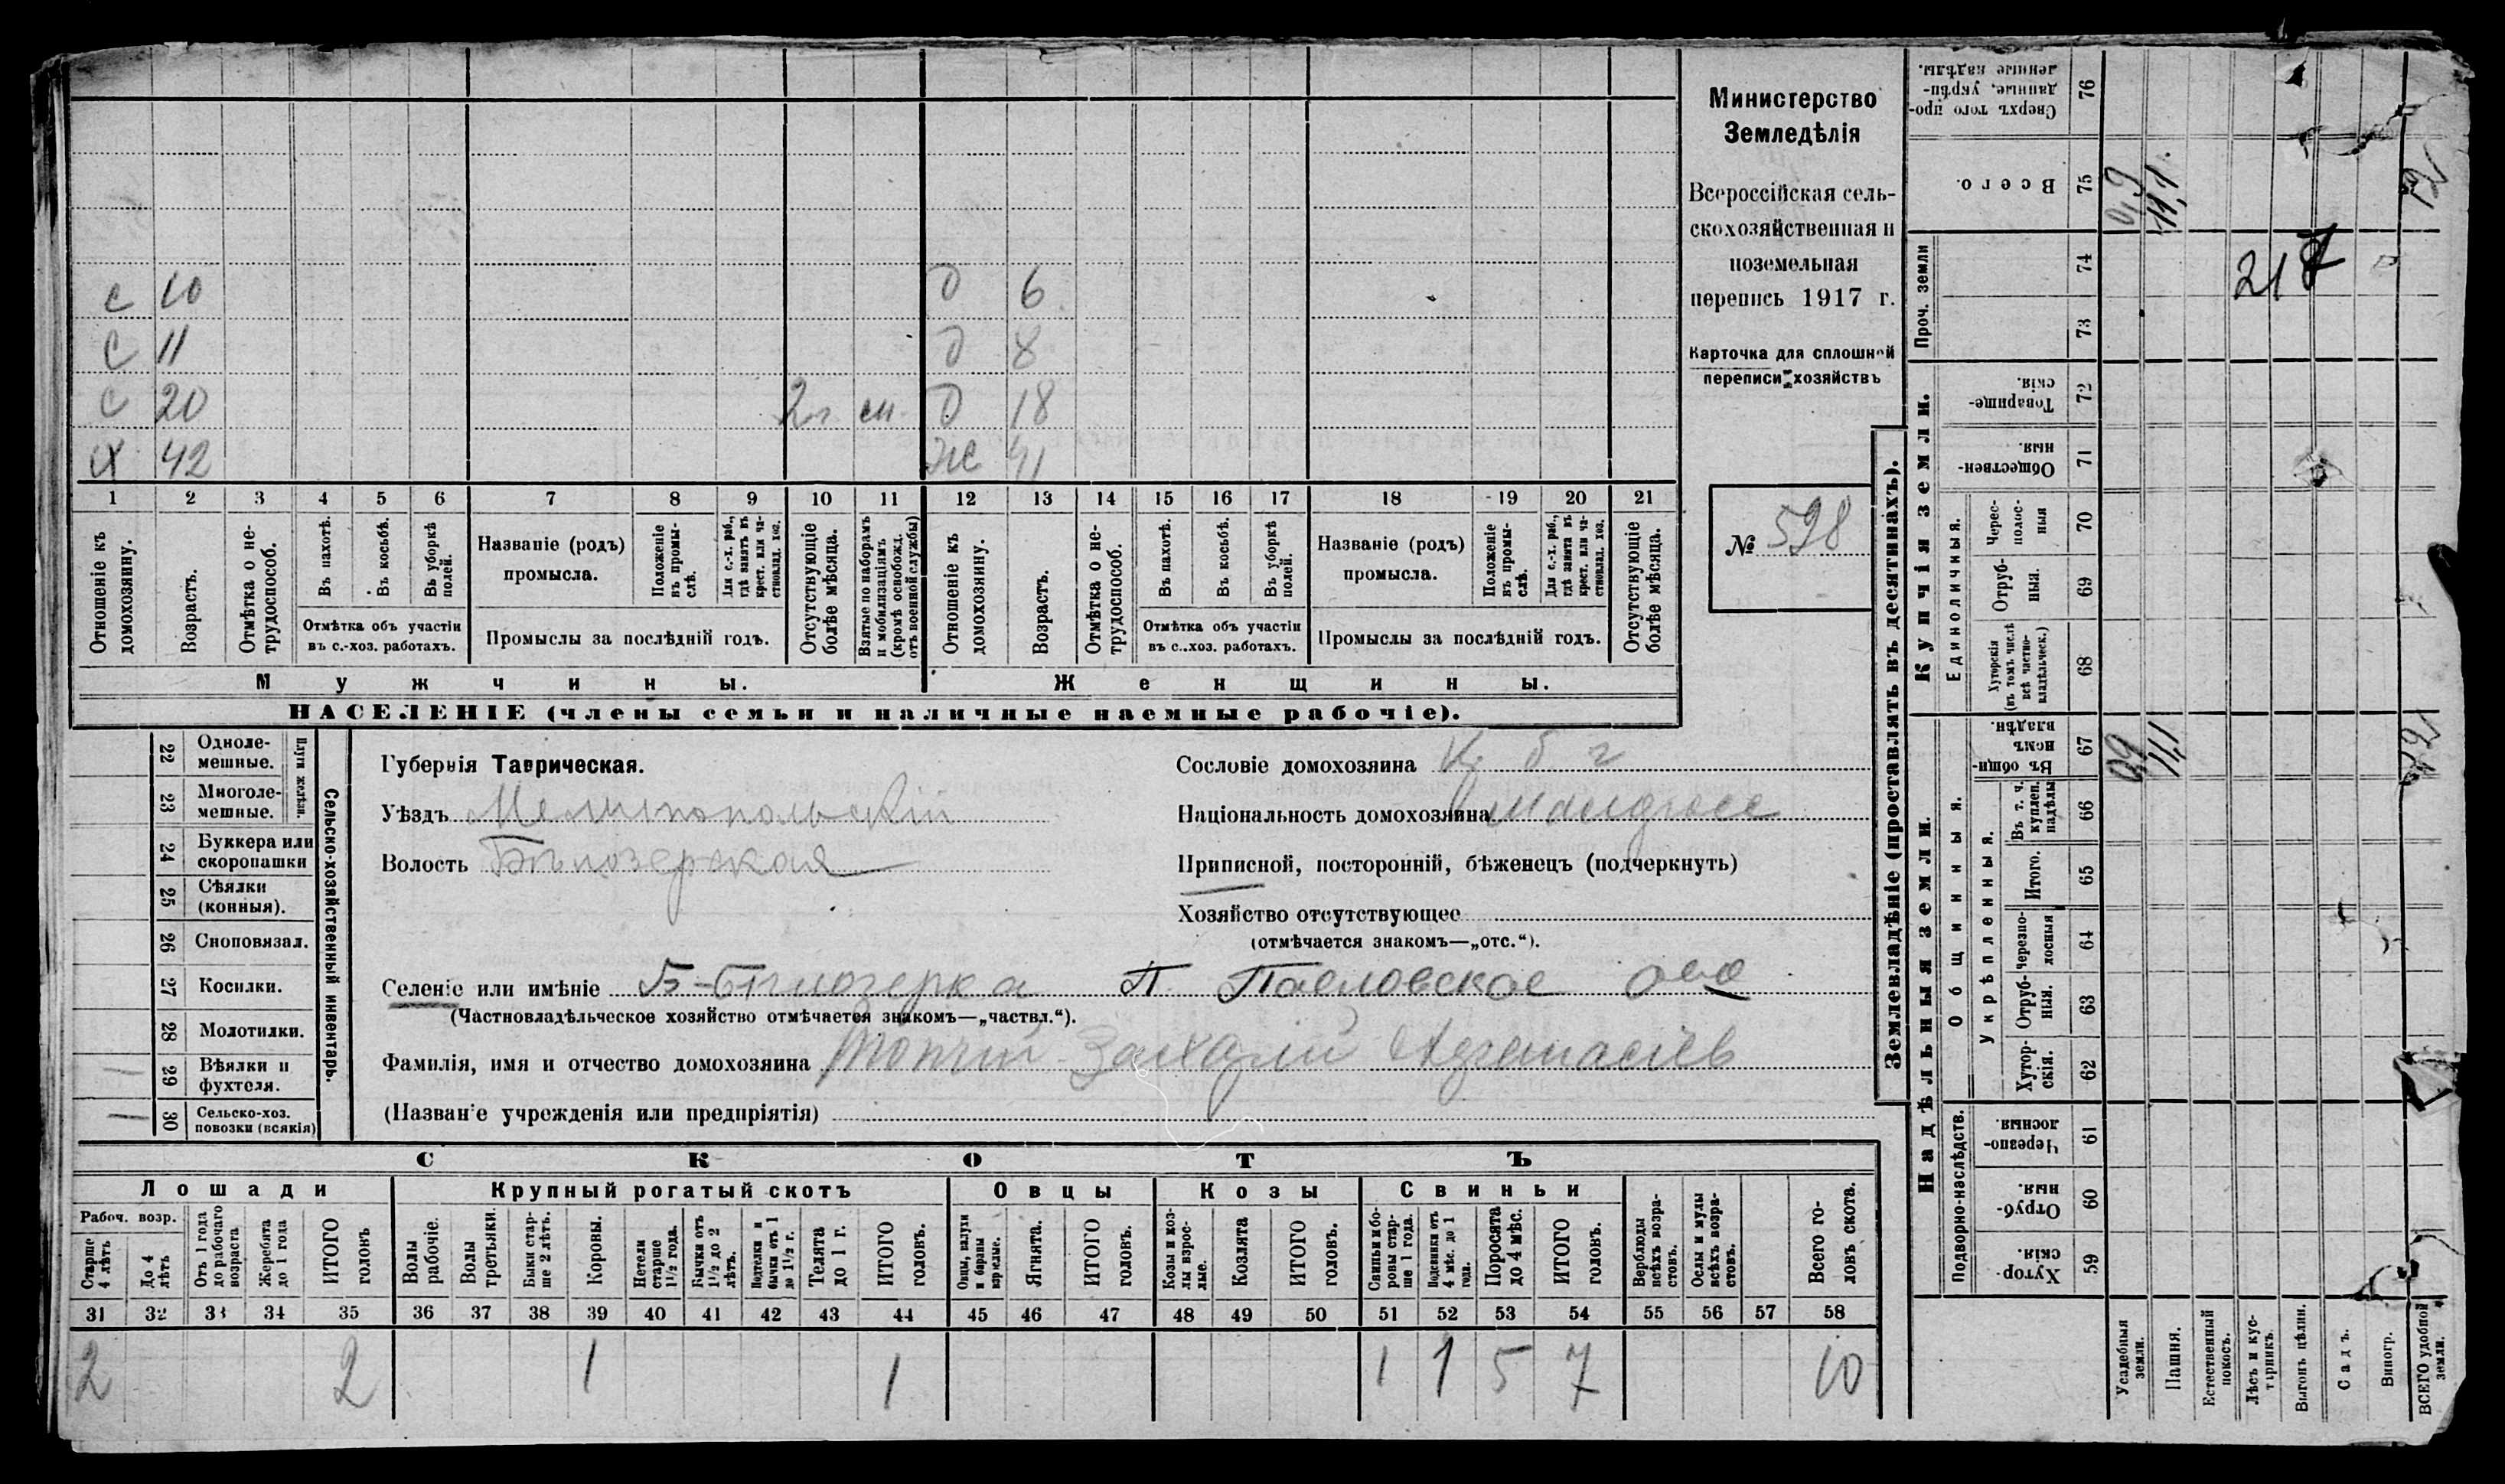 Министерство
Земледѣлія
Всероссійская сель-
скохозяйственная и
поземельная
перепись 1917 г.
Карточка для сплошной
переписи хозяйствъ
№ 598
с 10 О 6
с 11 О 8
с 20 2 г О 18
Х 42 Ж 41
1 2 3 4 5 6 7 8 9 10 11 12 13 14 15 16 17 18 19 20 21
Отношеніе къ домохозяину.
Возрастъ.
Отмѣтка о не-трудоспособ.
Въ пахотѣ.
Въ косьбѣ.
Въ уборкѣ полей.
Отмѣтка объ участіи
въ с.-хоз. работахъ.
Названіе (родъ)
промысла.
Положеніе въ промы-слѣ.
Для с.-х. раб., гдѣ занятъ въ крест. или ча-стновлад. хоз.
Промыслы за послѣдній годъ.
Отсутствующіе болѣе мѣсяца.
Взятые по наборамъ и мобилизаціямъ (кромѣ освобожд. отъ военной службы)
Отношеніе къ домохозяину.
Возрастъ.
Отмѣтка о не-трудоспособ.
Въ пахотѣ.
Въ косьбѣ.
Въ уборкѣ полей.
Отмѣтка объ участіи
въ с..хоз. работахъ.
Названіе (родъ)
промысла.
Положеніе въ промы-слѣ.
Для с.-х. раб., гдѣ занята въ крест. или ча-стновлад. хоз.
Промыслы за послѣдній годъ.
Отсутствующіе болѣе мѣсяца.
Мужчины. Женщины.
НАСЕЛЕНІЕ (члены семьи и наличные наемные рабочіе).
Сельско-хозяйственный инвентарь.
Плуги желѣзн.
22 Одноле-мешные.
23 Многоле-мешные.
24 Буккера или скоропашки
25 Сѣялки (конныя).
26 Сноповязал.
27 Косилки.
28 Молотилки.
29 Вѣялки и фухтеля.
30 Сельско-хоз. повозки (всякія)
Губернія Таврическая.
Уѣздъ Мелитопольскій
Волость Бѣлозерская
Сословіе домохозяина
Національность домохозяина
Приписной, посторонній, бѣженецъ (подчеркнуть)
Хозяйство отсутствующее
(отмѣчается знакомъ—„отс.“).
Селеніе или имѣніе Б-Бѣлозерка П. Павловское
(Частновладѣльческое хозяйство отмѣчается знакомъ—„частвл.“).
Фамилія, имя и отчество домохозяина Топчій Захарій Афанасіев
(Названіе учрежденія или предпріятія)
СКОТЪ
Лошади
Рабоч. возр.
Старше 4 лѣтъ
До 4 лѣтъ
Отъ 1 года до рабочаго возраста
Жеребята до 1 года
ИТОГО головъ
Крупный рогатый скотъ
Волы рабочіе.
Волы третьяки.
Быки стар-ше 2 лѣтъ.
Коровы.
Нетели старше 1½ года.
Бычки отъ 1½ до 2 лѣтъ.
Подтелки и бычки отъ 1 до 1½ г.
Телята до 1 г.
ИТОГО головъ.
Овцы
Овцы, валухи и бараны взрослые.
Ягнята.
ИТОГО головъ.
Козы
Козы и коз-лы взрос-лые.
Козлята
ИТОГО головъ.
Свиньи
Свиньи и бо-ровы стар-ше 1 года.
Подсвинки отъ 4 мѣс. до 1 года.
Поросята до 4 мѣс.
ИТОГО головъ.
Верблюды всѣхъ возра-стовъ.
Ослы и мулы всѣхъ возра-стовъ.
Всего го-ловъ скота.
31 32 33 34 35 36 37 38 39 40 41 42 43 44 45 46 47 48 49 50 51 52 53 54 55 56 57 58
2 2 1 1 1 1 5 7 10
Землевладѣніе (проставлять въ десятинахъ).
Надѣльныя земли.
Подворно-наслѣдств.
Хутор-скія. 59
Отруб-ныя. 60
Черезпо-лосныя. 61
Общинныя.
Укрѣпленныя.
Хутор-скія. 62
Отруб-ныя. 63
Черезпо-лосныя 64
Итого. 65
Въ т. ч. куплен. надѣлы 66
Въ общи-номъ владѣн. 67
Купчія земли.
Единоличныя.
Хуторскія (въ томъ числѣ всѣ частно-владѣльческ.) 68
Отруб-ныя. 69
Черес-полос-ныя 70
Обществен-ныя. 71
Товарище-скія. 72
Проч. земли
73
74
Всего. 75
Сверхъ того про-данные, укрѣп-ленные надѣлы. 76
Усадебныя земли.
Пашня.
Естественный покосъ.
Лѣсъ и кус-тарникъ.
Выгонъ цѣлин.
Садъ.
Виногр.
ВСЕГО удобной земли.
0,9
11,1
12
0,9
11,1
12
217